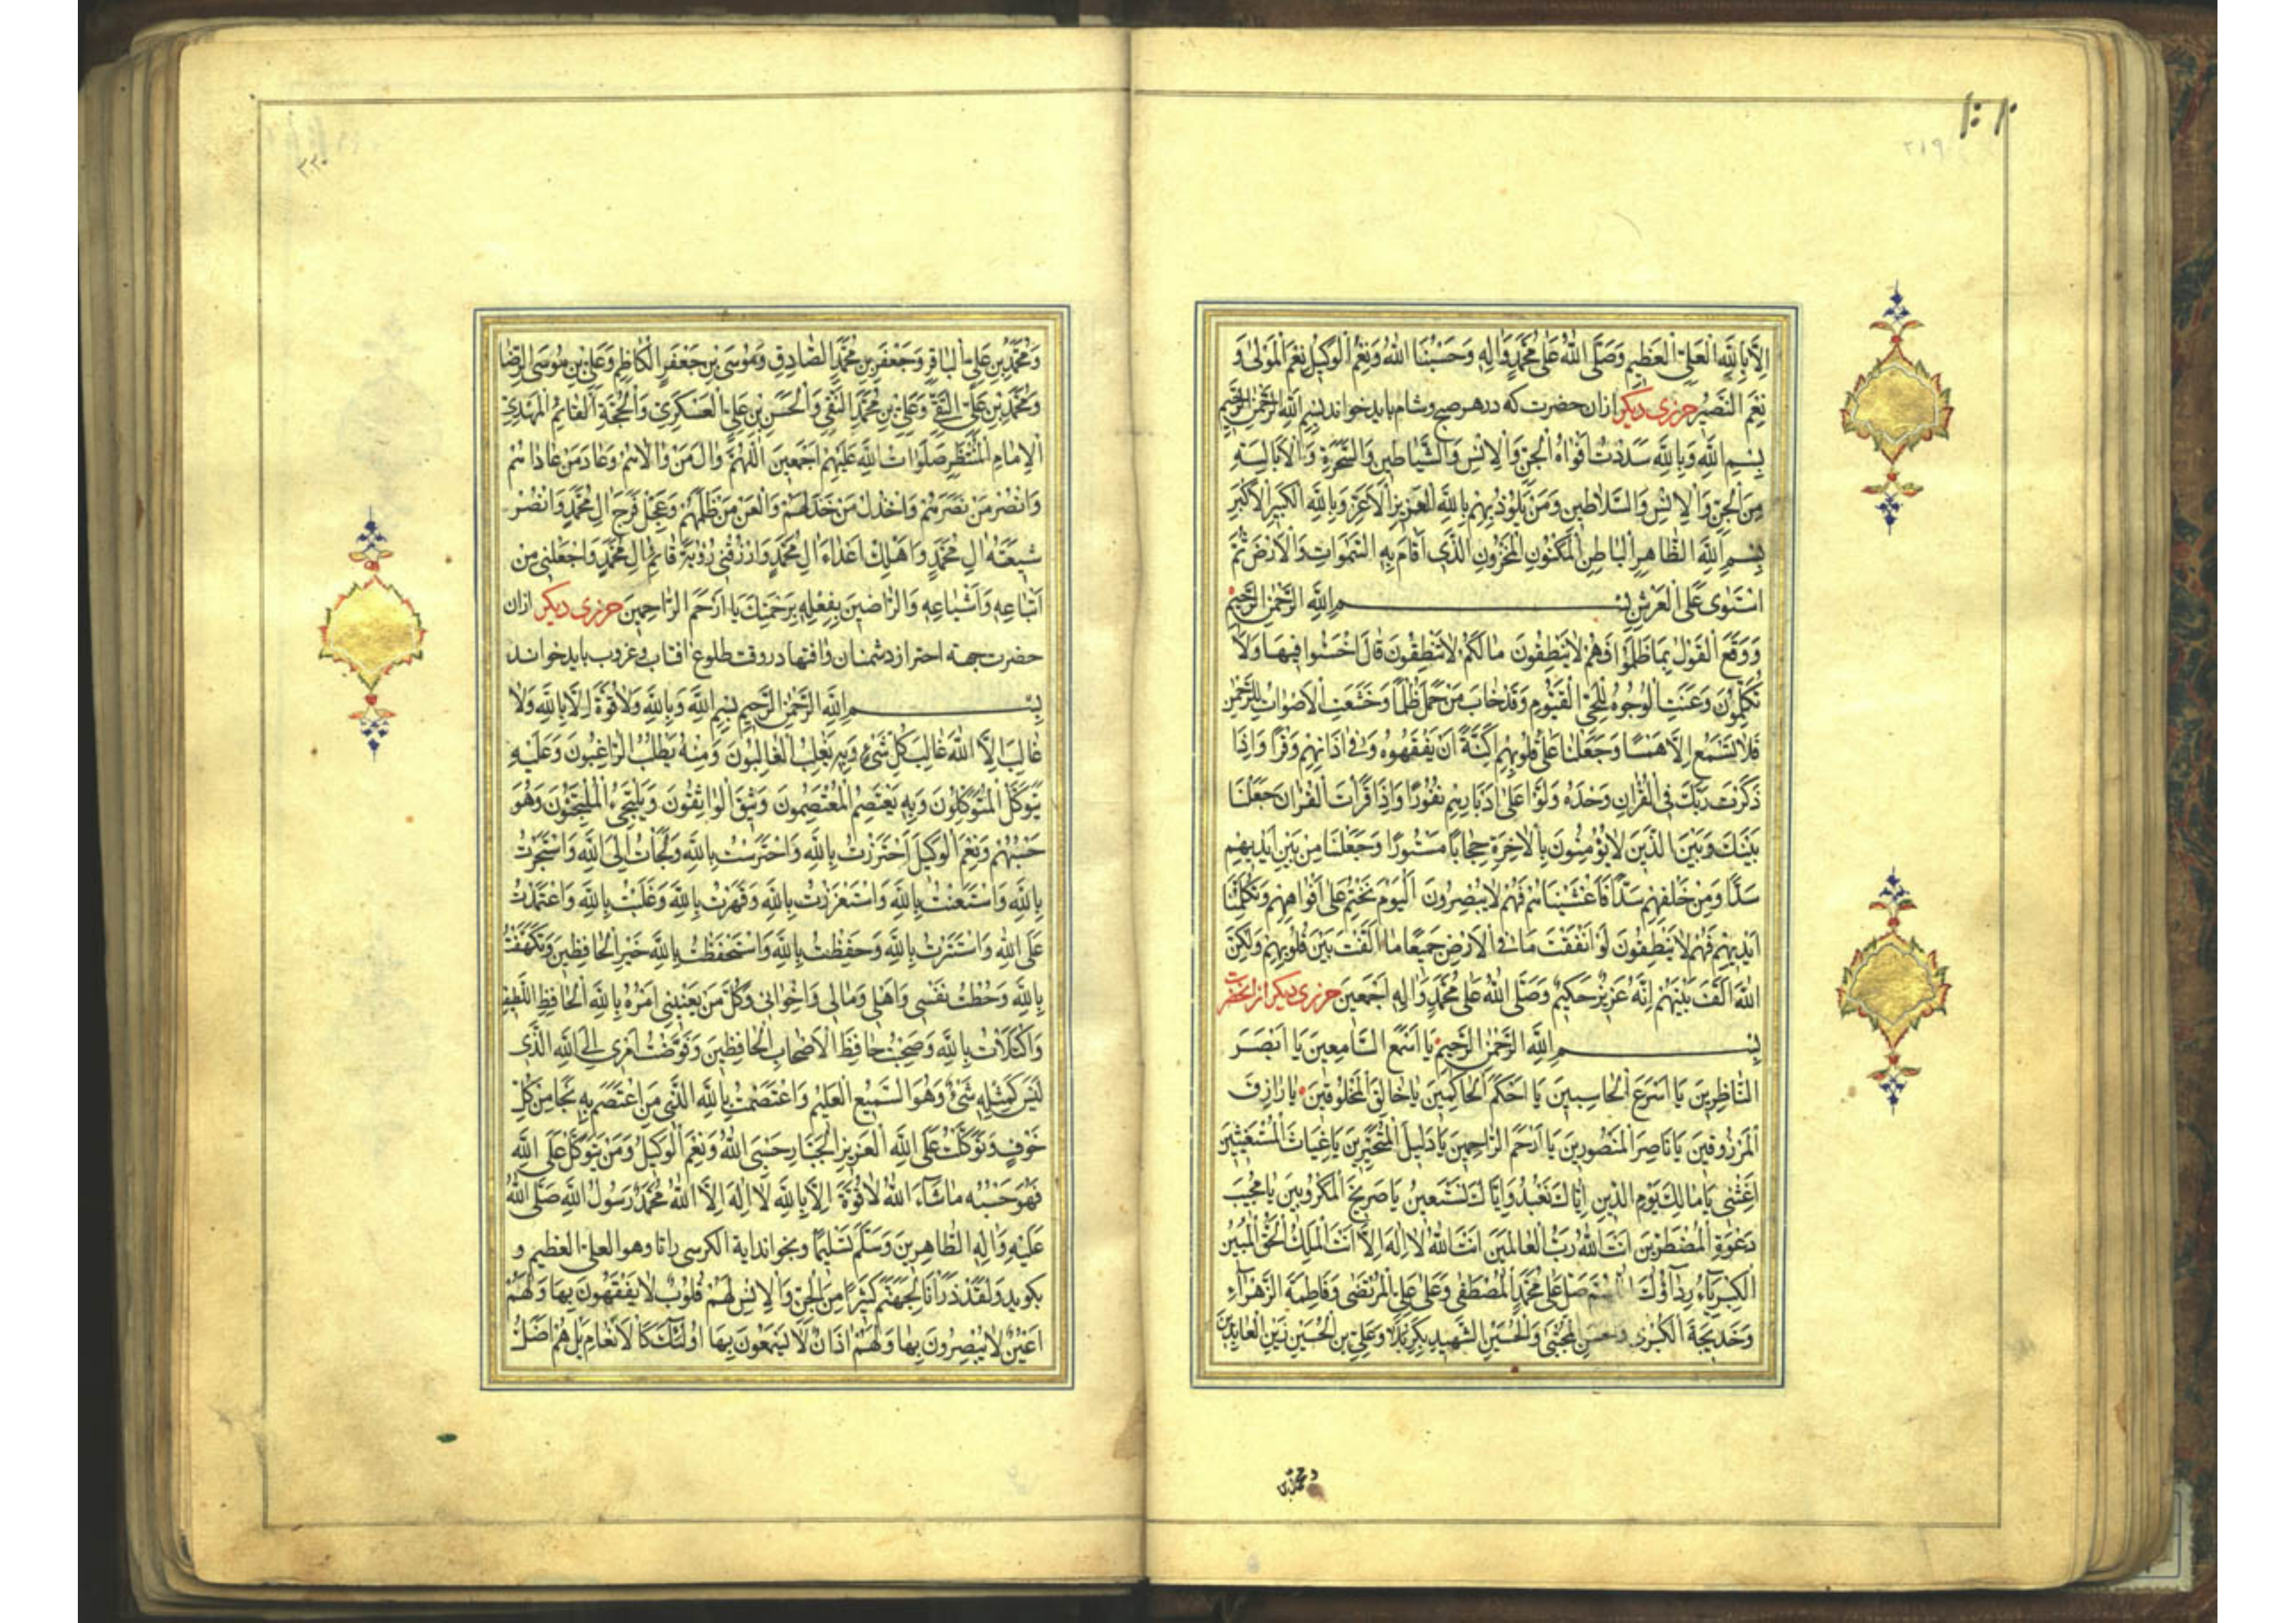 اِلَّا بِاللّٰهِ الْعَلِىِّ الْعَظِيمِ وَصَلَّى اللّٰهُ عَلٰى مُحَمَّدٍ وَاٰلِهِ وَحَسْبُنَا اللّٰهُ وَنِعْمَ الْوَكِيلُ نِعْمَ الْمَوْلٰى وَ
نِعْمَ النَّصِيرُ حرزى ديكر ازان حضرت كه در هر صبح و شام بايد خواند بِسْمِ اللّٰهِ الرَّحْمٰنِ الرَّحِيمِ
بِسْمِ اللّٰهِ وَبِاللّٰهِ سَدَدْتُ اَفْوَاهَ الْجِنِّ وَالْاِنْسِ وَالشَّيَاطِينِ وَالسَّحَرَةِ وَالْاَبَالِسَةِ
مِنَ الْجِنِّ وَالْاِنْسِ وَالسَّلَاطِينِ وَمَنْ يَلُوذُ بِهِمْ بِاللّٰهِ الْعَزِيزِ الْاَعَزِّ وَبِاللّٰهِ الْكَبِيرِ الْاَكْبَرِ
بِسْمِ اللّٰهِ الظَّاهِرِ الْبَاطِنِ الْمَكْنُونِ الْمَخْزُونِ الَّذِى اَقَامَ بِهِ السَّمٰوَاتِ وَالْاَرْضَ ثُمَّ
اسْتَوٰى عَلَى الْعَرْشِ بِسْمِ اللّٰهِ الرَّحْمٰنِ الرَّحِيمِ
وَوَقَعَ الْقَوْلُ بِمَا ظَلَمُوا فَهُمْ لَا يَنْطِقُونَ مَا لَكُمْ لَا تَنْطِقُونَ قَالَ اخْسَئُوا فِيهَا وَلَا
تُكَلِّمُونِ وَعَنَتِ الْوُجُوهُ لِلْحَىِّ الْقَيُّومِ وَقَدْ خَابَ مَنْ حَمَلَ ظُلْمًا وَخَشَعَتِ الْاَصْوَاتُ لِلرَّحْمٰنِ
فَلَا تَسْمَعُ اِلَّا هَمْسًا وَجَعَلْنَا عَلٰى قُلُوبِهِمْ اَكِنَّةً اَنْ يَفْقَهُوهُ وَفِى اٰذَانِهِمْ وَقْرًا وَاِذَا
ذَكَرْتَ رَبَّكَ فِى الْقُرْاٰنِ وَحْدَهُ وَلَّوْا عَلٰى اَدْبَارِهِمْ نُفُورًا وَاِذَا قَرَاْتَ الْقُرْاٰنَ جَعَلْنَا
بَيْنَكَ وَبَيْنَ الَّذِينَ لَا يُؤْمِنُونَ بِالْاٰخِرَةِ حِجَابًا مَسْتُورًا وَجَعَلْنَا مِنْ بَيْنِ اَيْدِيهِمْ
سَدًّا وَمِنْ خَلْفِهِمْ سَدًّا فَاَغْشَيْنَاهُمْ فَهُمْ لَا يُبْصِرُونَ اَلْيَوْمَ نَخْتِمُ عَلٰى اَفْوَاهِهِمْ وَتُكَلِّمُنَا
اَيْدِيهِمْ فَهُمْ لَا يَنْطِقُونَ لَوْ اَنْفَقْتَ مَا فِى الْاَرْضِ جَمِيعًا مَا اَلَّفْتَ بَيْنَ قُلُوبِهِمْ وَلٰكِنَّ
اللّٰهَ اَلَّفَ بَيْنَهُمْ اِنَّهُ عَزِيزٌ حَكِيمٌ وَصَلَّى اللّٰهُ عَلٰى مُحَمَّدٍ وَاٰلِهِ اَجْمَعِينَ حرزى ديكر از انحضرت
بِسْمِ اللّٰهِ الرَّحْمٰنِ الرَّحِيمِ يَا اَسْمَعَ السَّامِعِينَ يَا اَبْصَرَ
النَّاظِرِينَ يَا اَسْرَعَ الْحَاسِبِينَ يَا اَحْكَمَ الْحَاكِمِينَ يَا خَالِقَ الْمَخْلُوقِينَ يَا رَازِقَ
الْمَرْزُوقِينَ يَا نَاصِرَ الْمَنْصُورِينَ يَا اَرْحَمَ الرَّاحِمِينَ يَا دَلِيلَ الْمُتَحَيِّرِينَ يَا غِيَاثَ الْمُسْتَغِيثِينَ
اَغِثْنِى يَا مَالِكَ يَوْمِ الدِّينِ اِيَّاكَ نَعْبُدُ وَاِيَّاكَ نَسْتَعِينُ يَا صَرِيخَ الْمَكْرُوبِينَ يَا مُجِيبَ
دَعْوَةِ الْمُضْطَرِّينَ اَنْتَ اللّٰهُ رَبُّ الْعَالَمِينَ اَنْتَ اللّٰهُ لَا اِلٰهَ اِلَّا اَنْتَ الْمَلِكُ الْحَقُّ الْمُبِينُ
الْكِبْرِيَاءُ رِدَاؤُكَ صَلِّ عَلٰى مُحَمَّدٍ الْمُصْطَفٰى وَعَلٰى عَلِىٍّ الْمُرْتَضٰى وَفَاطِمَةَ الزَّهْرَاءِ
وَخَدِيجَةَ الْكُبْرٰى وَالْحَسَنِ الْمُجْتَبٰى وَالْحُسَيْنِ الشَّهِيدِ بِكَرْبَلَا وَعَلِىِّ بْنِ الْحُسَيْنِ زَيْنِ الْعَابِدِينَ
و محمد بن
٢١٩
وَمُحَمَّدِ بْنِ عَلِىٍّ الْبَاقِرِ وَجَعْفَرِ بْنِ مُحَمَّدٍ الصَّادِقِ وَمُوسَى بْنِ جَعْفَرٍ الْكَاظِمِ وَعَلِىِّ بْنِ مُوسَى الرِّضَا
وَمُحَمَّدِ بْنِ عَلِىٍّ التَّقِىِّ وَعَلِىِّ بْنِ مُحَمَّدٍ النَّقِىِّ وَالْحَسَنِ بْنِ عَلِىٍّ الْعَسْكَرِىِّ وَالْحُجَّةِ الْقَائِمِ الْمَهْدِىِّ
الْاِمَامِ الْمُنْتَظَرِ صَلَوَاتُ اللّٰهِ عَلَيْهِمْ اَجْمَعِينَ اَللّٰهُمَّ وَالِ مَنْ وَالَاهُمْ وَعَادِ مَنْ عَادَاهُمْ
وَانْصُرْ مَنْ نَصَرَهُمْ وَاخْذُلْ مَنْ خَذَلَهُمْ وَالْعَنْ مَنْ ظَلَمَهُمْ وَعَجِّلْ فَرَجَ اٰلِ مُحَمَّدٍ وَانْصُرْ
شِيعَةَ اٰلِ مُحَمَّدٍ وَاَهْلِكْ اَعْدَاءَ اٰلِ مُحَمَّدٍ وَارْزُقْنِى رُؤْيَةَ قَائِمِ اٰلِ مُحَمَّدٍ وَاجْعَلْنِى مِنْ
اَتْبَاعِهِ وَاَشْيَاعِهِ وَالرَّاضِينَ بِفِعْلِهِ بِرَحْمَتِكَ يَا اَرْحَمَ الرَّاحِمِينَ حرزى ديكر ازان
حضرت جهة احتراز دشمنان و افتها در وقت طلوع افتاب و غروب بايد خواند
بِسْمِ اللّٰهِ الرَّحْمٰنِ الرَّحِيمِ بِسْمِ اللّٰهِ وَبِاللّٰهِ وَلَا قُوَّةَ اِلَّا بِاللّٰهِ وَلَا
غَالِبَ اِلَّا اللّٰهُ غَالِبُ كُلِّ شَىْءٍ وَبِهِ يَغْلِبُ الْغَالِبُونَ وَمِنْهُ يَطْلُبُ الرَّاغِبُونَ وَعَلَيْهِ
يَتَوَكَّلُ الْمُتَوَكِّلُونَ وَبِهِ يَعْتَصِمُ الْمُعْتَصِمُونَ وَيَثِقُ الْوَاثِقُونَ وَيَلْتَجِئُ الْمُلْتَجِئُونَ وَهُوَ
حَسْبُهُمْ وَنِعْمَ الْوَكِيلُ اَحْتَرَزْتُ بِاللّٰهِ وَاحْتَرَسْتُ بِاللّٰهِ وَلَجَاْتُ اِلَى اللّٰهِ وَاسْتَجَرْتُ
بِاللّٰهِ وَاسْتَعَنْتُ بِاللّٰهِ وَاسْتَعْزَزْتُ بِاللّٰهِ وَقَهَرْتُ بِاللّٰهِ وَغَلَبْتُ بِاللّٰهِ وَاعْتَمَدْتُ
عَلَى اللّٰهِ وَاسْتَتَرْتُ بِاللّٰهِ وَحَفِظْتُ بِاللّٰهِ وَاسْتَحْفَظْتُ بِاللّٰهِ خَيْرِ الْحَافِظِينَ وَتَكَهَّفْتُ
بِاللّٰهِ وَحُطْتُ نَفْسِى وَاَهْلِى وَمَالِى وَاِخْوَانِى وَكُلَّ مَنْ يَعْنِينِى اَمْرُهُ بِاللّٰهِ الْحَافِظِ اللَّطِيفِ
وَاكْتَلَاْتُ بِاللّٰهِ وَصَحِبْتُ حَافِظَ الْاَصْحَابِ الْحَافِظِينَ وَفَوَّضْتُ اَمْرِى اِلَى اللّٰهِ الَّذِى
لَيْسَ كَمِثْلِهِ شَىْءٌ وَهُوَ السَّمِيعُ الْعَلِيمُ وَاعْتَصَمْتُ بِاللّٰهِ الَّذِى مَنِ اعْتَصَمَ بِهِ نَجَا مِنْ كُلِّ
خَوْفٍ وَتَوَكَّلْتُ عَلَى اللّٰهِ الْعَزِيزِ الْجَبَّارِ حَسْبِىَ اللّٰهُ وَنِعْمَ الْوَكِيلُ وَمَنْ يَتَوَكَّلْ عَلَى اللّٰهِ
فَهُوَ حَسْبُهُ مَا شَاءَ اللّٰهُ لَا قُوَّةَ اِلَّا بِاللّٰهِ لَا اِلٰهَ اِلَّا اللّٰهُ مُحَمَّدٌ رَسُولُ اللّٰهِ صَلَّى اللّٰهُ
عَلَيْهِ وَاٰلِهِ الطَّاهِرِينَ وَسَلَّمَ تَسْلِيمًا و بخواند اية الكرسى را تا وهو العلى العظيم و
بكويد وَلَقَدْ ذَرَاْنَا لِجَهَنَّمَ كَثِيرًا مِنَ الْجِنِّ وَالْاِنْسِ لَهُمْ قُلُوبٌ لَا يَفْقَهُونَ بِهَا وَلَهُمْ
اَعْيُنٌ لَا يُبْصِرُونَ بِهَا وَلَهُمْ اٰذَانٌ لَا يَسْمَعُونَ بِهَا اُولٰئِكَ كَالْاَنْعَامِ بَلْ هُمْ اَضَلُّ
٢٢٠